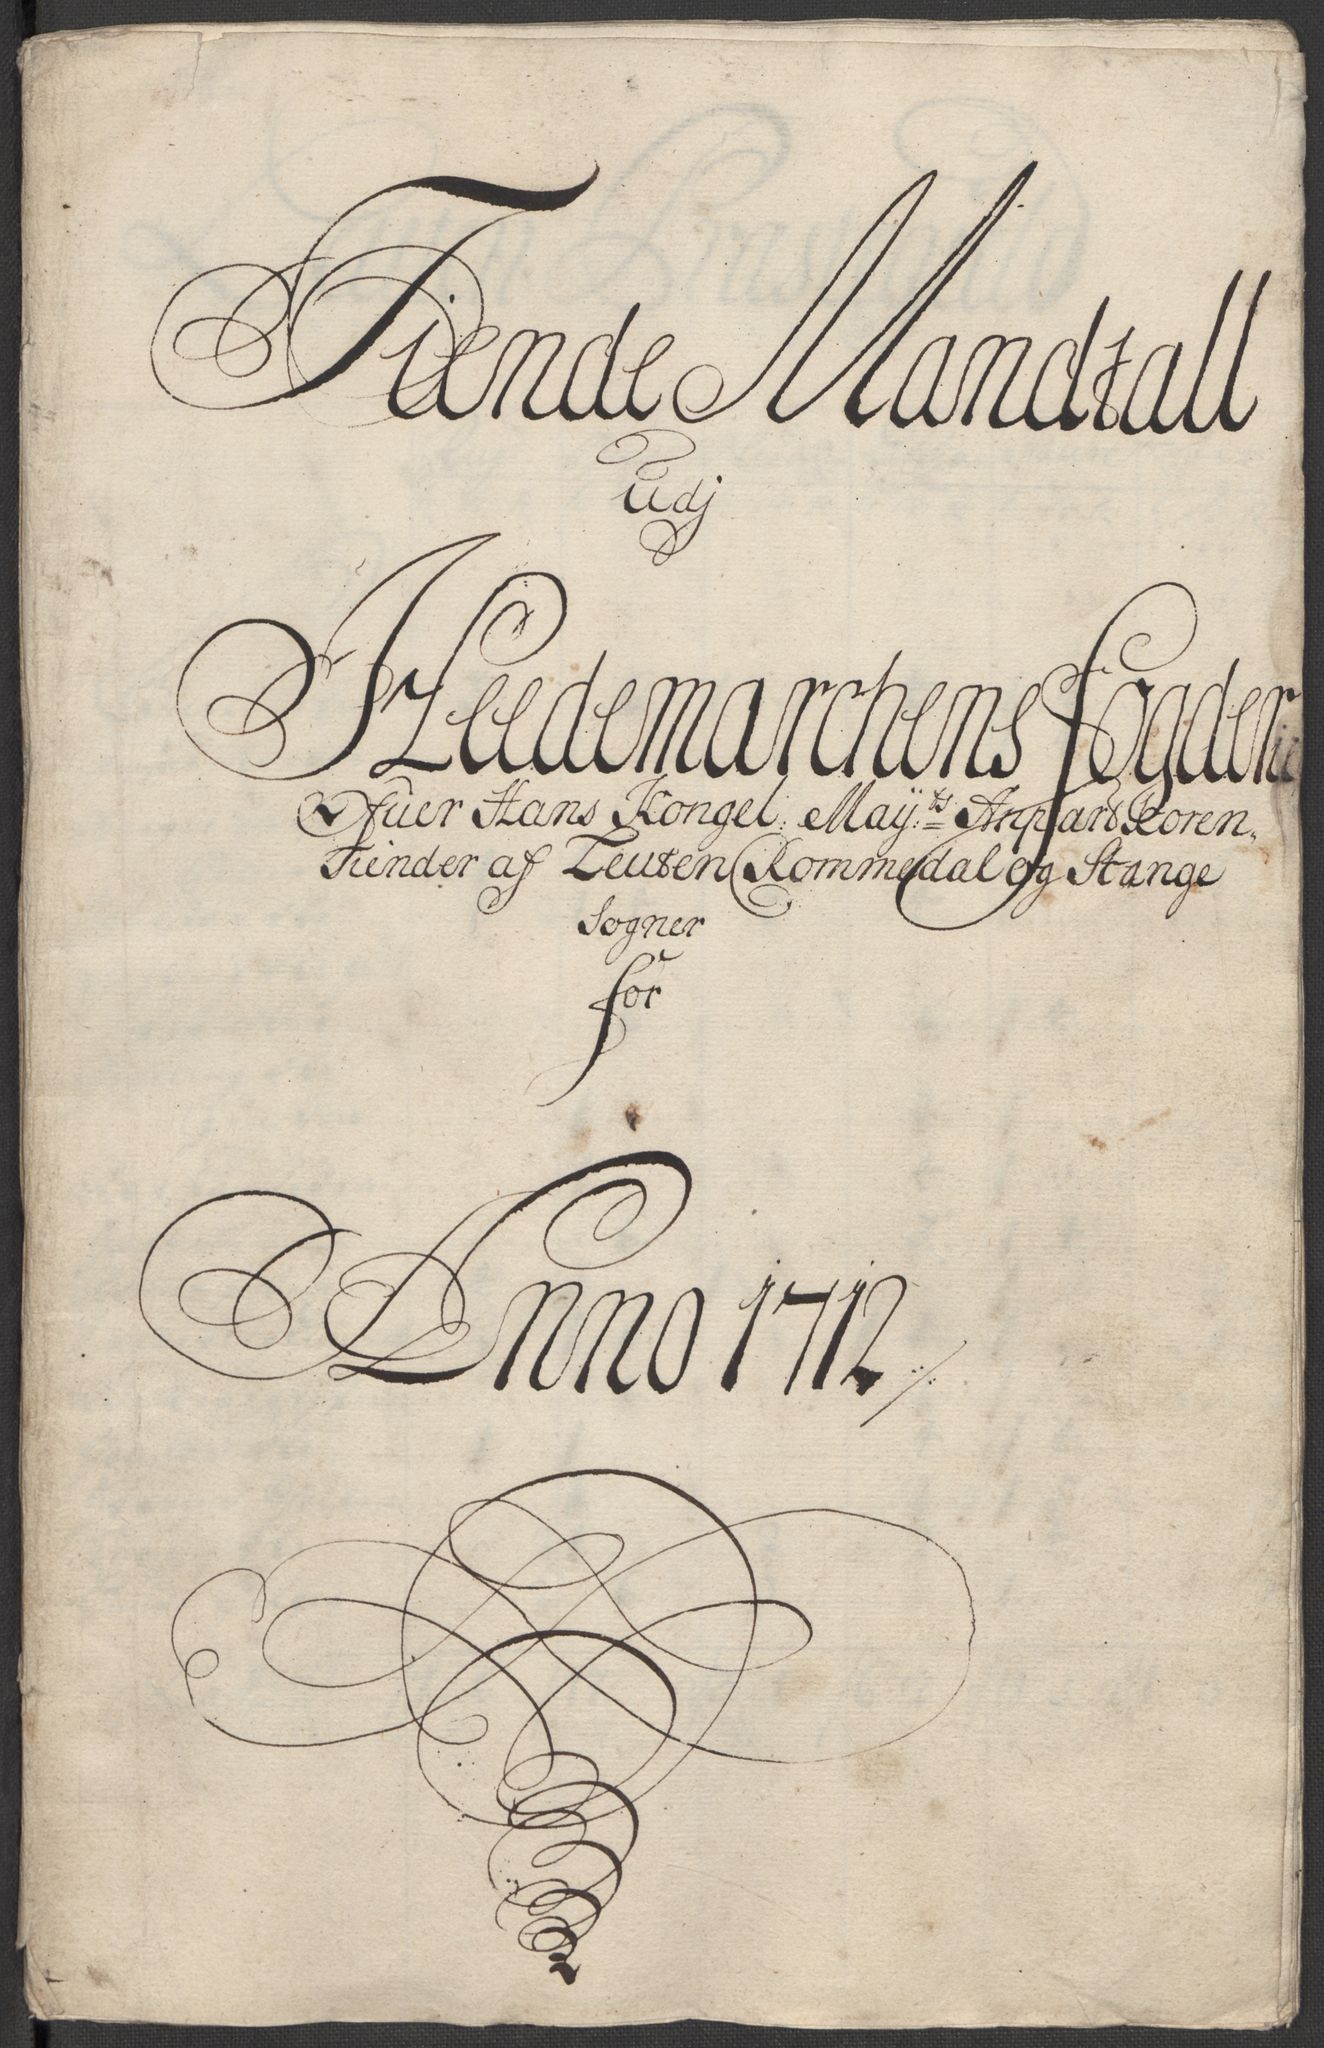 Tiende Mandtall
udj
Heedemarchens fogderie
Ofuer Hans Kongel: May:ts Anpart Koren
Tiender af Leuten Rommedal og Stange
Sogner
for
Anno 1712